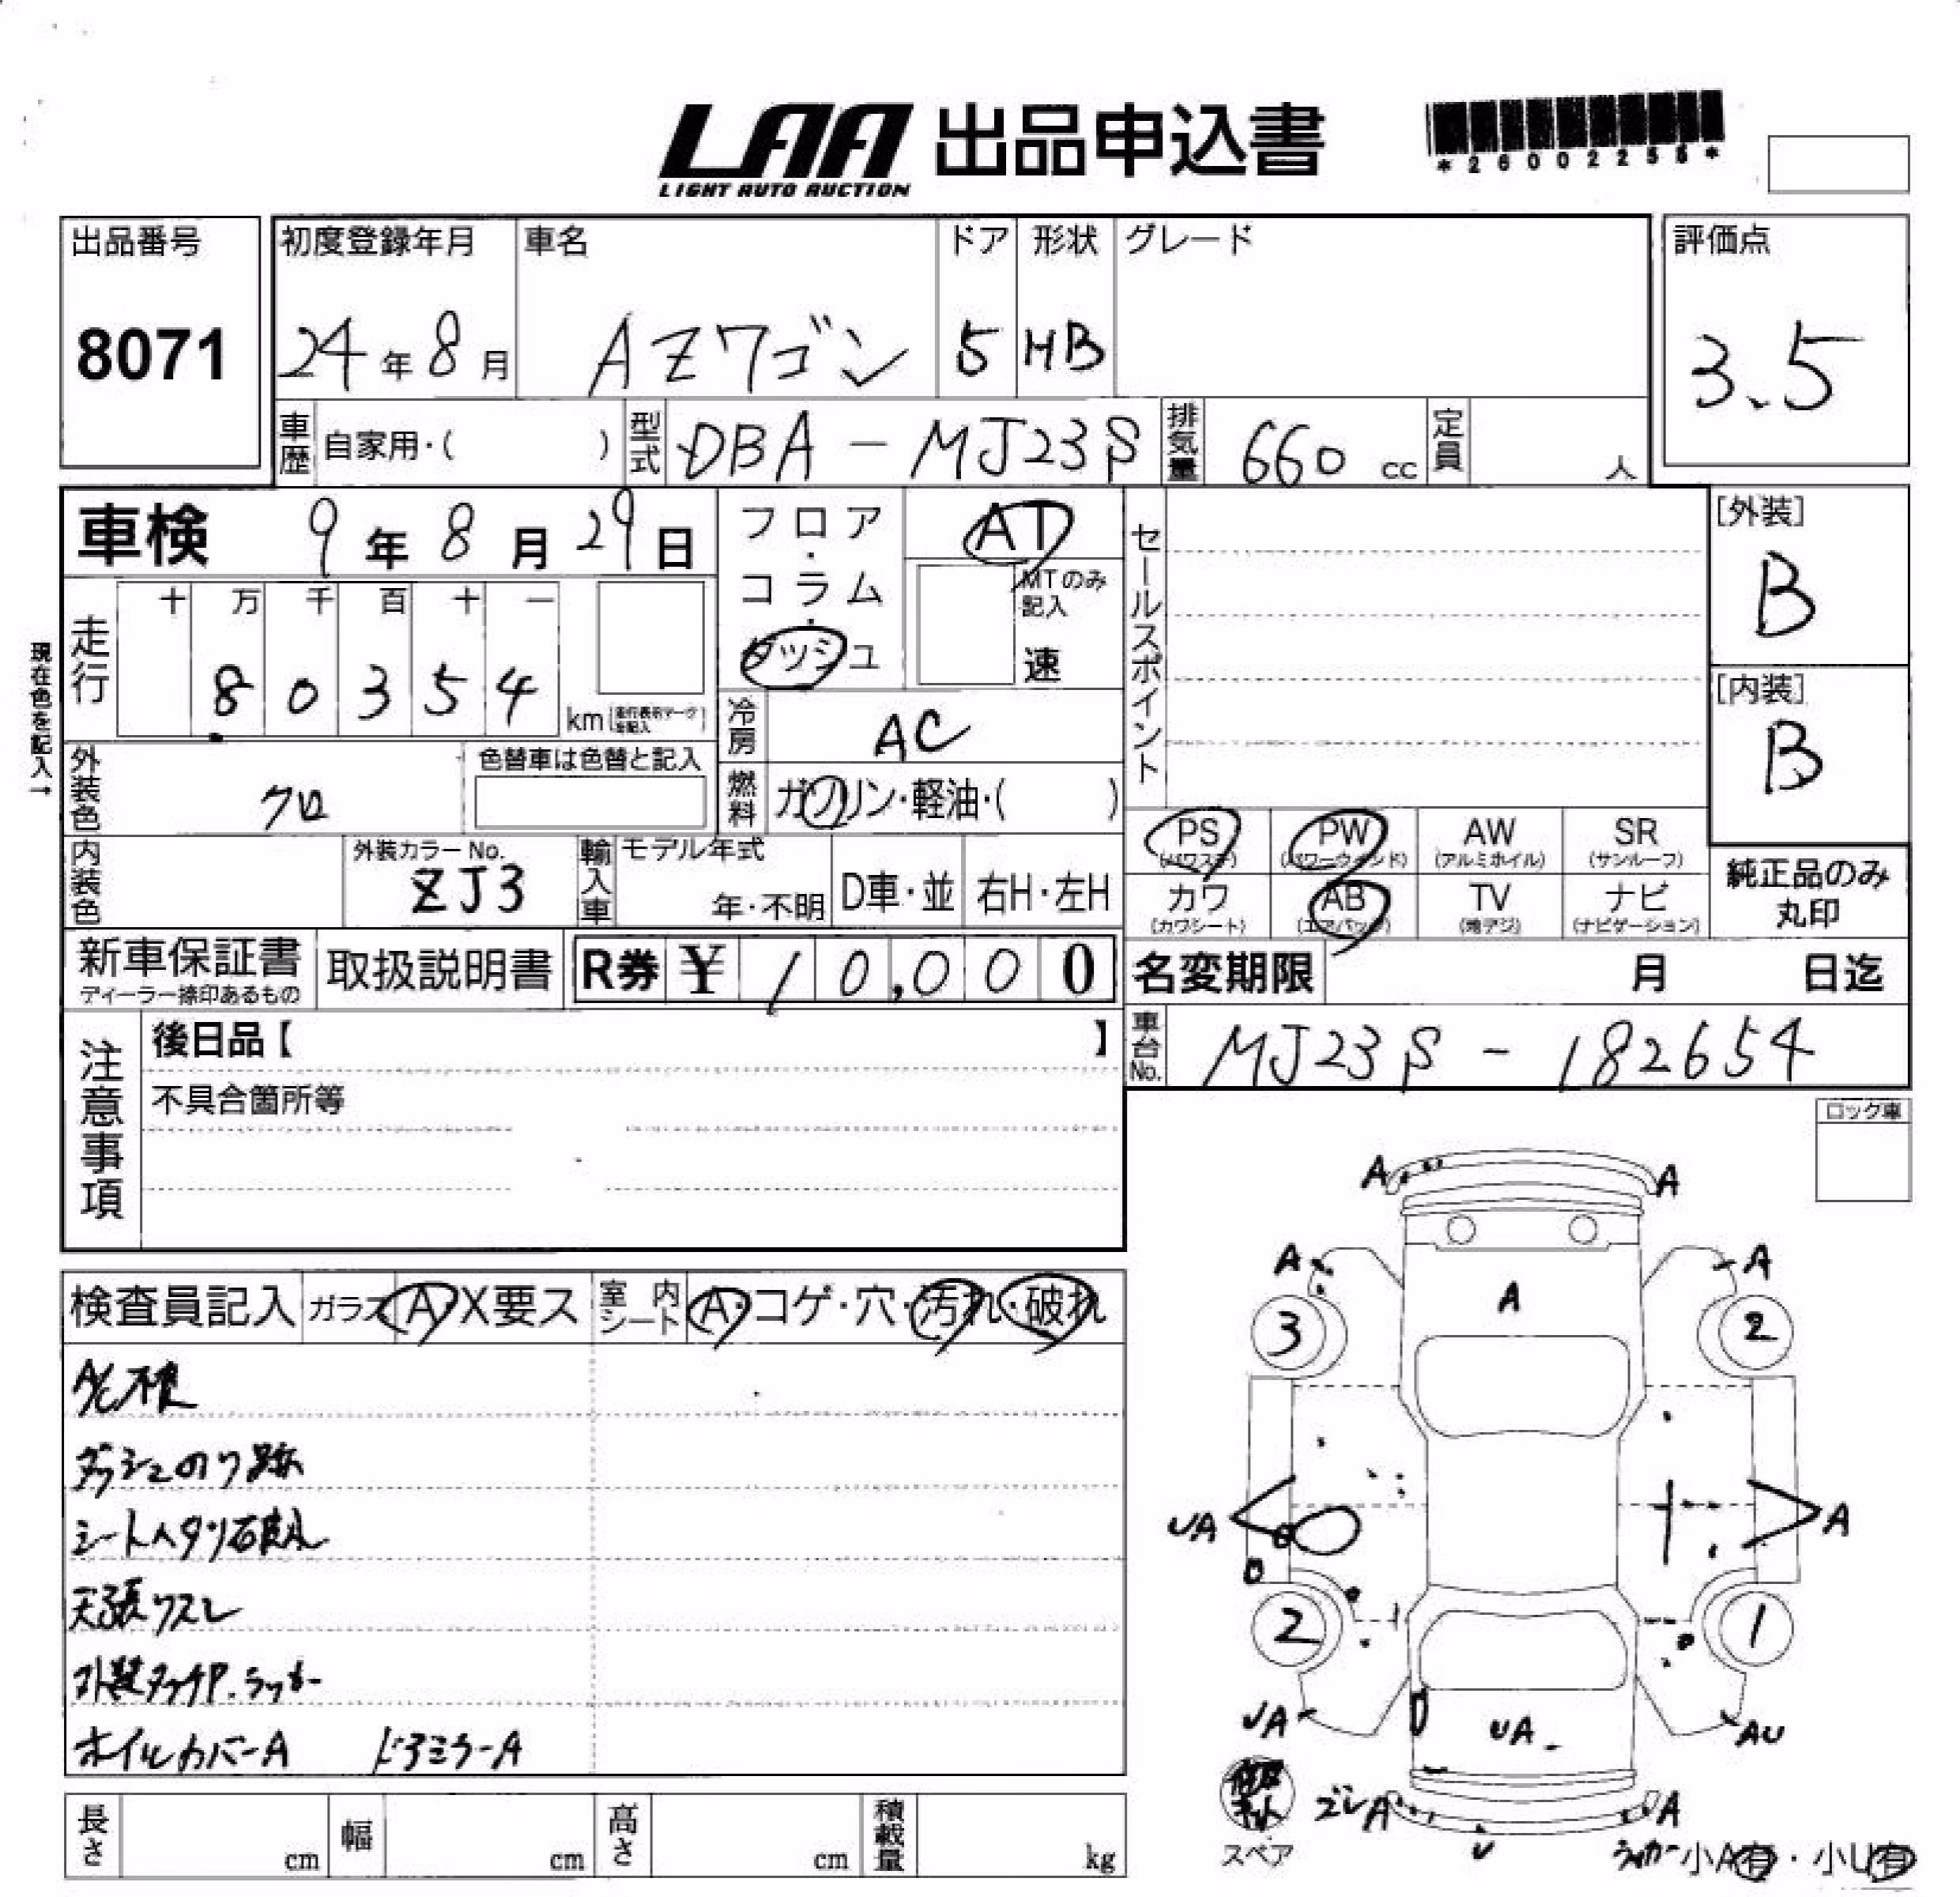 LAA 出品申込書
LIGHT AUTO AUCTION
*26002255*
出品番号
8071
初度登録年月
24年8月
車名
AZワゴン
ドア
5
形状
HB
グレード
評価点
3.5
車歴
自家用・( )
型式
DBA-MJ23S
排気量
660 cc
定員
人
車検 9年8月29日
フロア・コラム・ダッシュ
AT
MTのみ記入
速
セールスポイント
[外装]
B
[内装]
B
現在色を記入→
走行
十 万 千 百 十 一
8 0 3 5 4
km (走行表示マークを記入)
冷房
AC
外装色
クロ
色替車は色替と記入
燃料
ガソリン・軽油・( )
内装色
外装カラーNo.
ZJ3
輸入車
モデル年式
年・不明
D車・並
右H・左H
PS
(パワステ)
PW
(パワーウィンド)
AW
(アルミホイル)
SR
(サンルーフ)
カワ
(カワシート)
AB
(エアバッグ)
TV
(地デジ)
ナビ
(ナビゲーション)
純正品のみ
丸印
新車保証書
ディーラー捺印あるもの
取扱説明書
R券 ¥ 10,000
名変期限
月 日迄
車台No.
MJ23S-182654
注意事項
後日品【 】
不具合箇所等
ロック車
検査員記入
ガラス A X要ス
室内シート
A・コゲ・穴・汚れ・破れ
ダッシュのり跡
シートヘタリ破れ
天張ウスレ
外装タッチP.ラッカー
ホイルカバーA ドアミラーA
A A
A A
A
3 2
UA A
2 1
UA AU
UA
ズレA A
U
スペア
ラッカー小A有・小U有
長さ cm
幅 cm
高さ cm
積載量 kg